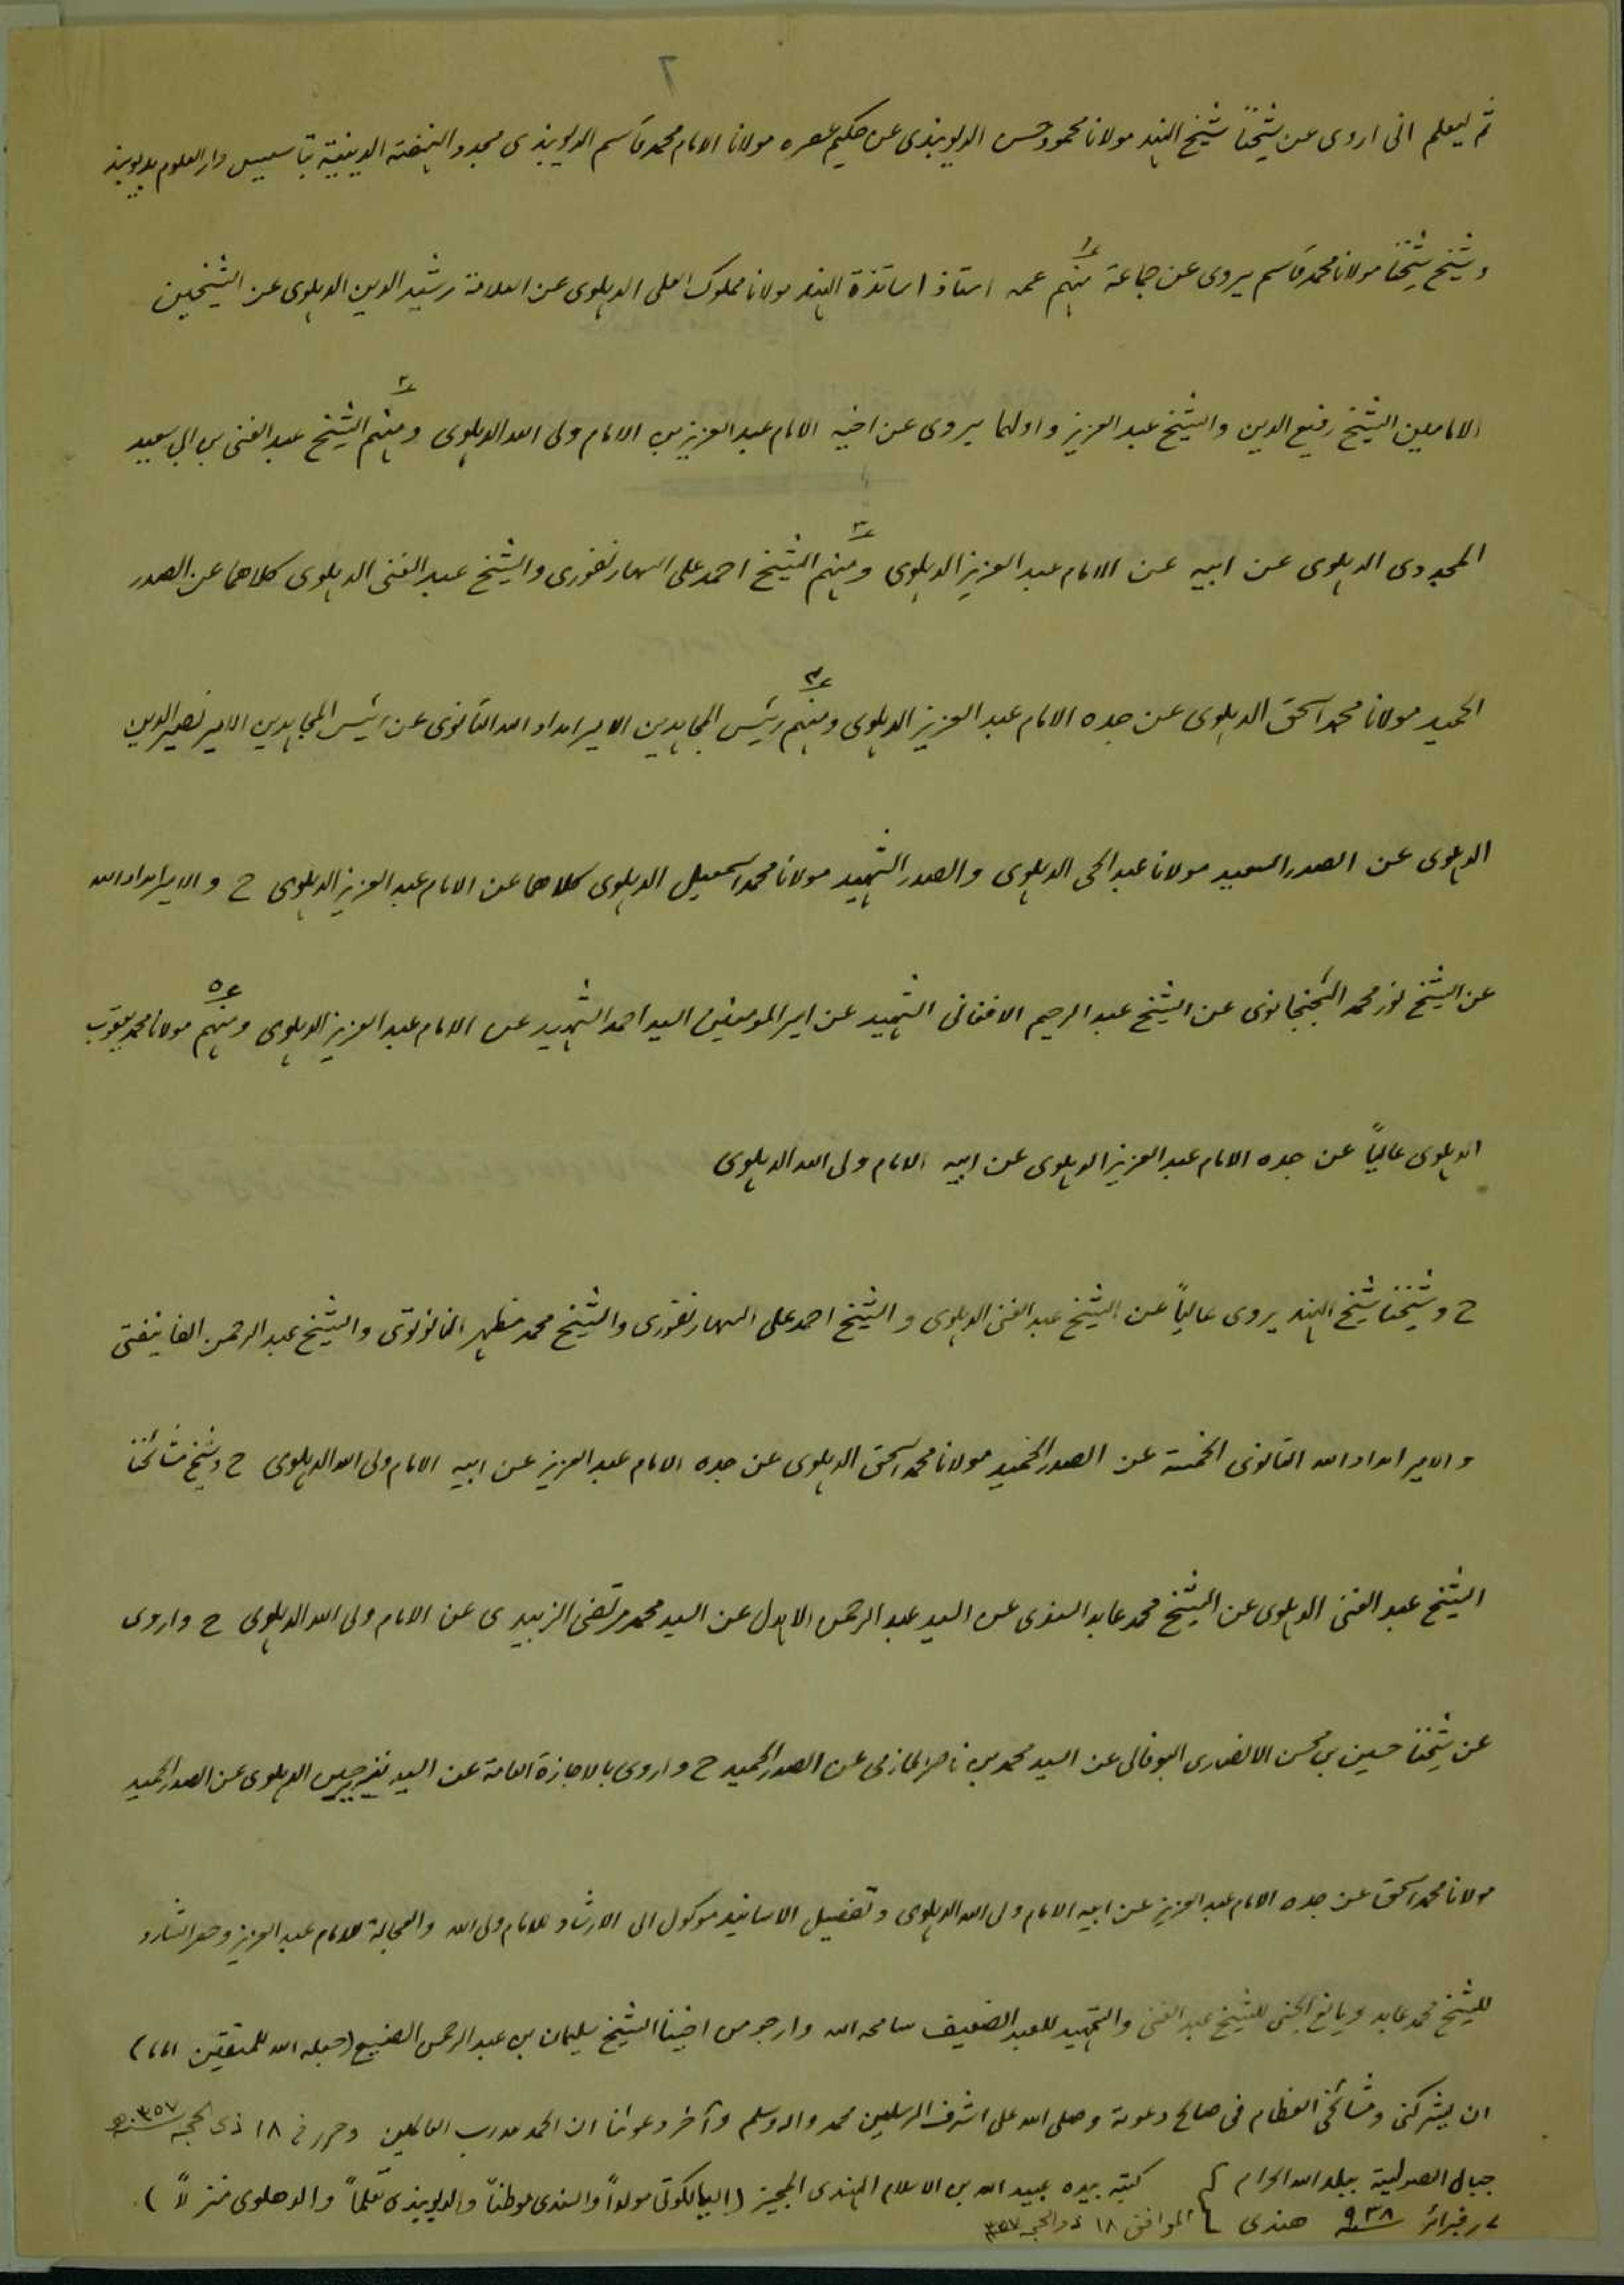 ٢
ثم ليعلم انى اروى عن شيخنا شيخ الهند مولانا محمود حسن الديوبندى عن حكيم عصره مولانا الامام محمد قاسم الديوبندى مجدد النهضة الدينية بتأسيس دار العلوم بديوبند
وشيخ شيخنا مولانا محمد قاسم يروى عن جماعة منهم عمه استاذ اساتذة الهند مولانا مملوك العلى الدهلوى عن العلامة رشيد الدين الدهلوى عن الشيخين
الامامين الشيخ رفيع الدين والشيخ عبد العزيز واولهما يروى عن اخيه الامام عبد العزيز بن الامام ولى الله الدهلوى ومنهم الشيخ عبد الغنى بن ابى سعيد
المجددى الدهلوى عن ابيه عن الامام عبد العزيز الدهلوى ومنهم الشيخ احمد على السهارنفورى والشيخ عبد الغنى الدهلوى كلاهما عن الصدر
الحميد مولانا محمد اسحق الدهلوى عن جده الامام عبد العزيز الدهلوى ومنهم رئيس المجاهدين الامير امداد الله التانوى عن رئيس المجاهدين الامير نصير الدين
الدهلوى عن الصدر السعيد مولانا عبد الحى الدهلوى والصدر الشهيد مولانا محمد اسمعيل الدهلوى كلاهما عن الامام عبد العزيز الدهلوى ح والامير امداد الله
عن الشيخ نور محمد الجنجانوى عن الشيخ عبد الرحيم الافغانى الشهيد عن امير المومنين السيد احمد الشهيد عن الامام عبد العزيز الدهلوى ومنهم مولانا محمد يعقوب
الدهلوى عالياً عن جده الامام عبد العزيز الدهلوى عن ابيه الامام ولى الله الدهلوى
ح وشيخنا شيخ الهند يروى عالياً عن الشيخ عبد الغنى الدهلوى والشيخ احمد على السهارنفورى والشيخ محمد مظهر النانوتوى والشيخ عبد الرحمن الفانيفتى
والامير امداد الله التانوى الخمسة عن الصدر الحميد مولانا محمد اسحق الدهلوى عن جده الامام عبد العزيز عن ابيه الامام ولى الله الدهلوى ح وشيخ مشائخنا
الشيخ عبد الغنى الدهلوى عن الشيخ محمد عابد السندى عن السيد عبد الرحمن الاهدل عن السيد محمد مرتضى الزبيدى عن الامام ولى الله الدهلوى ح واروى
عن شيخنا حسين بن محسن الانصارى البوفالى عن السيد محمد بن ناصر الحازمى عن الصدر الحميد ح واروى بالاجازة العامة عن السيد نذير حسين الدهلوى عن الصدر الحميد
مولانا محمد اسحق عن جده الامام عبد العزيز عن ابيه الامام ولى الله الدهلوى وتفصيل الاسانيد موكول الى الارشاد للامام ولى الله والعجالة للامام عبد العزيز وحصر الشارد
للشيخ محمد عابد ويانع الجنى للشيخ عبد الغنى والتمهيد للعبد الضعيف سامحه الله وارجو من اخينا الشيخ سليمان بن عبد الرحمن الصنيع (جعله الله للمتقين اماما)
ان يشركنى ومشائخى العظام فى صالح دعوته وصلى الله على اشرف المرسلين محمد واله وسلم وآخر دعوانا ان الحمد لله رب العالمين وحرر فى ١٨ ذى الحجه سنه ٣٥٧ه
جبال الصولتية ببلد الله الحرام كتبه بيده عبيد الله بن الاسلام الهندى المجيز (السيالكوتى مولداً والسندى موطناً والديوبندى تعلماً والدهلوى منزلاً)
٧ فبرائر سنه ٩٣٨ هندى الموافق ١٨ ذوالحجه ٣٥٧